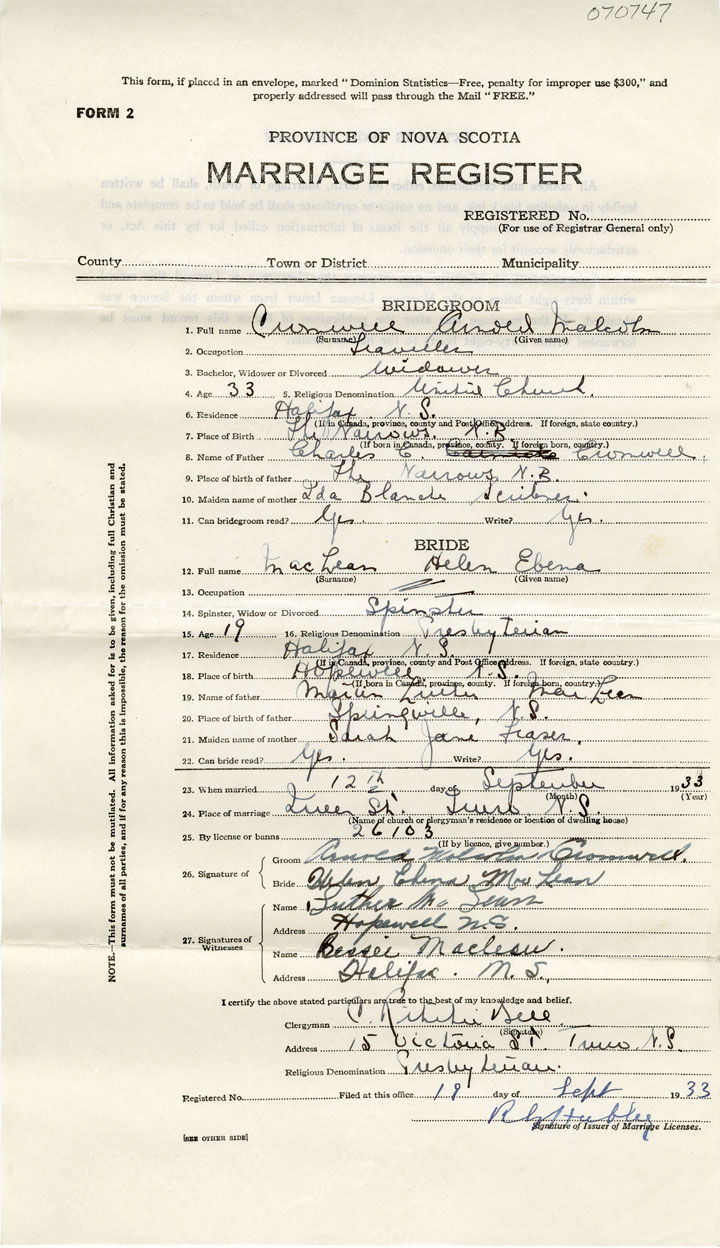 070747
This form, if placed in an envelope, marked "Dominion Statistics—Free, penalty for improper use $300," and
properly addressed will pass through the Mail "FREE."
FORM 2
PROVINCE OF NOVA SCOTIA
MARRIAGE REGISTER
REGISTERED No.
(For use of Registrar General only)
County Town or District Municipality
BRIDEGROOM
1. Full name Cromwell Arnold Malcolm
(Surname) (Given name)
2. Occupation Traveller
3. Bachelor, Widower or Divorced Widower
4. Age 33 5. Religious Denomination United Church.
6. Residence Halifax N.S.
(If in Canada, province, county and Post Office address. If foreign, state country.)
7. Place of Birth The Narrows. N.B
(If born in Canada, province, county. If foreign born, country.)
8. Name of Father Charles E. Cromwell.
9. Place of birth of father The Narrows N.B.
10. Maiden name of mother Ida Blanche Scribner.
11. Can bridegroom read? Yes. Write? Yes.
BRIDE
12. Full name MacLean Helen Ebena
(Surname) (Given name)
13. Occupation
14. Spinster, Widow or Divorced Spinster
15. Age 19 16. Religious Denomination Presbyterian
17. Residence Halifax N.S.
(If in Canada, province, county and Post Office address. If foreign, state country.)
18. Place of birth Hopewell N.S.
(If born in Canada, province, county. If foreign born, country.)
19. Name of father Martin Luther MacLean
20. Place of birth of father Springville, N.S.
21. Maiden name of mother Sarah Jane Fraser.
22. Can bride read? Yes. Write? Yes.
23. When married 12th day of September 1933
(Month) (Year)
24. Place of marriage Queen St. Truro N.S.
(Name of church or clergyman's residence or location of dwelling house)
25. By license or banns 26103
(If by licence, give number.)
26. Signature of
Groom Arnold Malcolm Cromwell.
Bride Helen Ebena MacLean
27. Signatures of
Witnesses
Name Luther McLean
Address Hopewell N.S.
Name Bessie Maclean.
Address Halifax. N.S.
I certify the above stated particulars are true to the best of my knowledge and belief.
Clergyman C. Ritchie Bell
(Signature)
Address 15 Victoria St. Truro N.S.
Religious Denomination Presbyterian.
Registered No. Filed at this office 19 day of Sept 1933
Signature of Issuer of Marriage Licenses.
[SEE OTHER SIDE]
NOTE.—This form must not be mutilated. All information asked for is to be given, including full Christian and
surnames of all parties, and if for any reason this is impossible, the reason for the omission must be stated.